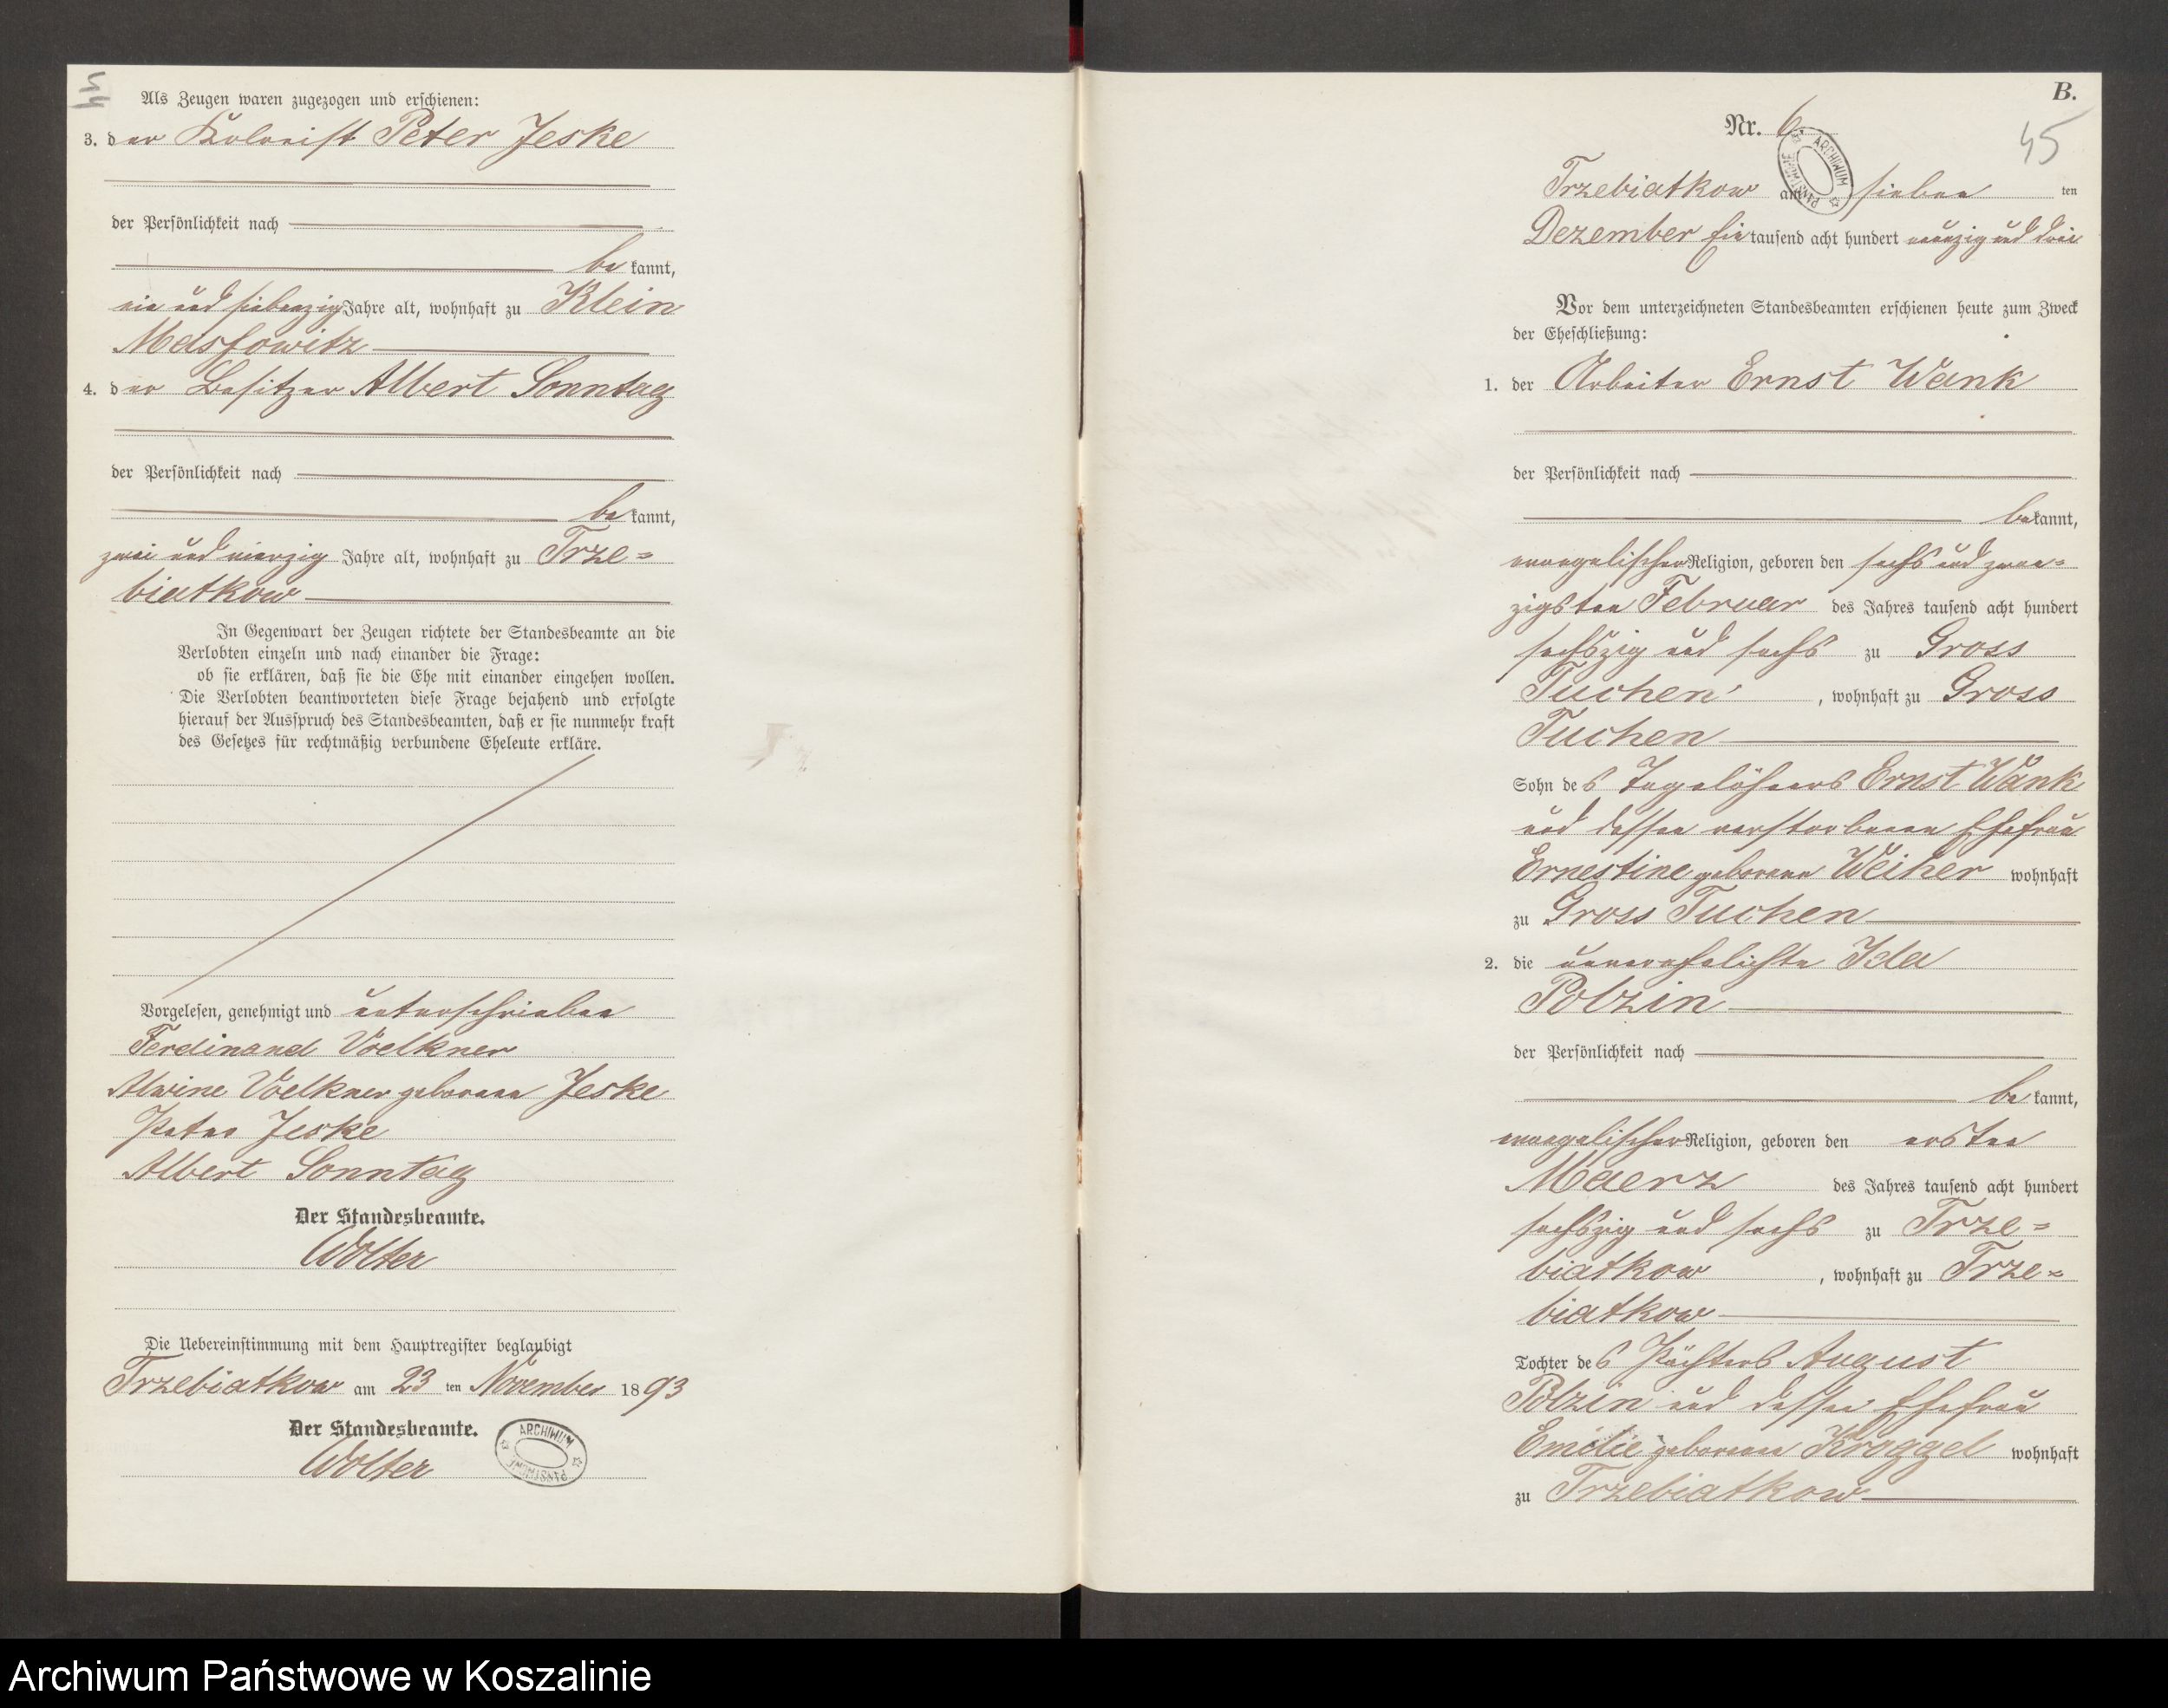 Als Zeugen waren zugezogen und erschienen:
3. der Kolonist Peter Jeske
der Persönlichkeit nach
be kannt,
ein und siebenzig Jahre alt, wohnhaft zu Klein
Massowitz
4. der Besitzer Albert Sonntag
der Persönlichkeit nach
be kannt,
zwei und vierzig Jahre alt, wohnhaft zu Trze=
biatkow
In Gegenwart der Zeugen richtete der Standesbeamte an die
Verlobten einzeln und nach einander die Frage:
ob sie erklären, daß sie die Ehe mit einander eingehen wollen.
Die Verlobten beantworteten diese Frage bejahend und erfolgte
hierauf der Ausspruch des Standesbeamten, daß er sie nunmehr kraft
des Gesetzes für rechtmäßig verbundene Eheleute erkläre.
Vorgelesen, genehmigt und unterschrieben
Ferdinand Voelkner
Alwine Voelkner geborene Jeske
Peter Jeske
Albert Sonntag
Der Standesbeamte.
Wolter
Die Uebereinstimmung mit dem Hauptregister beglaubigt
Trzebiatkow am 23 ten November 1893
Der Standesbeamte.
Wolter
ARCHIWUM PAŃSTWOWE
B.
Nr. 6.
45
ARCHIWUM PAŃSTWOWE
Trzebiatkow am sieben ten
Dezember Ein tausend acht hundert neunzig und drei
Vor dem unterzeichneten Standesbeamten erschienen heute zum Zweck
der Eheschließung:
1. der Arbeiter Ernst Wank
der Persönlichkeit nach
bekannt,
evangelischer Religion, geboren den sechs und zwan=
zigsten Februar des Jahres tausend acht hundert
sechszig und sechs zu Gross
Tuchen, wohnhaft zu Gross
Tuchen
Sohn des Tagelöhners Ernst Wank
und dessen verstorbenen Ehefrau
Ernestine geborene Weiher wohnhaft
zu Gross Tuchen
2. die unverehelichte Ida
Polzin
der Persönlichkeit nach
be kannt,
evangelischer Religion, geboren den ersten
Maerz des Jahres tausend acht hundert
sechszig und sechs zu Trze=
biatkow, wohnhaft zu Trze=
biatkow
Tochter des Pächters August
Polzin und dessen Ehefrau
Emilie geborene Kroggel wohnhaft
zu Trzebiatkow
Archiwum Państwowe w Koszalinie